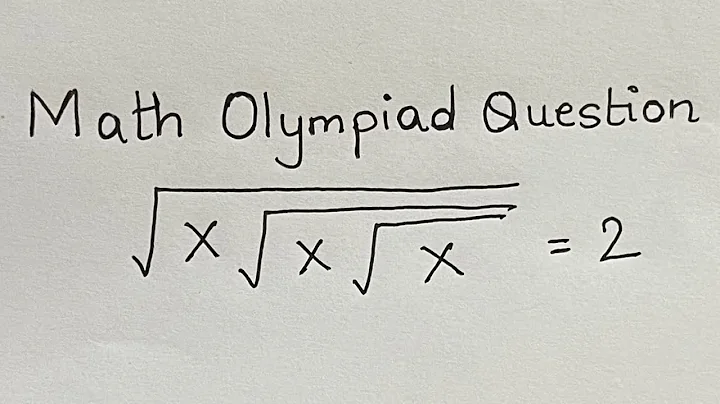 Math Olympiad Question
√(x√(x√x)) = 2